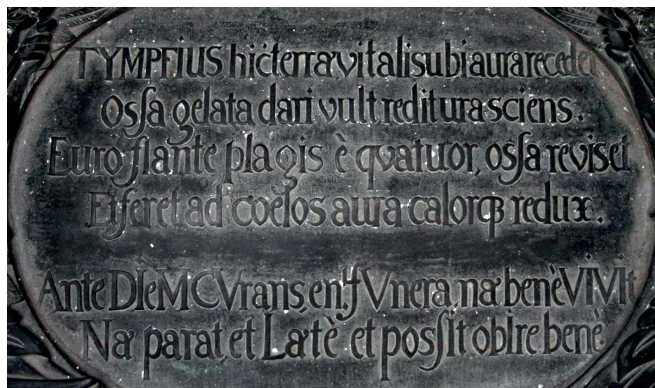 TYMPFIUS hic terra vitali subi aura recedet
Ossa gelata dari vult reditura sciens.
Euro flante plagis è qvatuor, ossa reviset
Et feret ad coelos aura calorqз redux.
Ante DIèM CVrans, en, fVnera, nã benè VIVIt
Nã parat, et Lætè et possit obIre benè